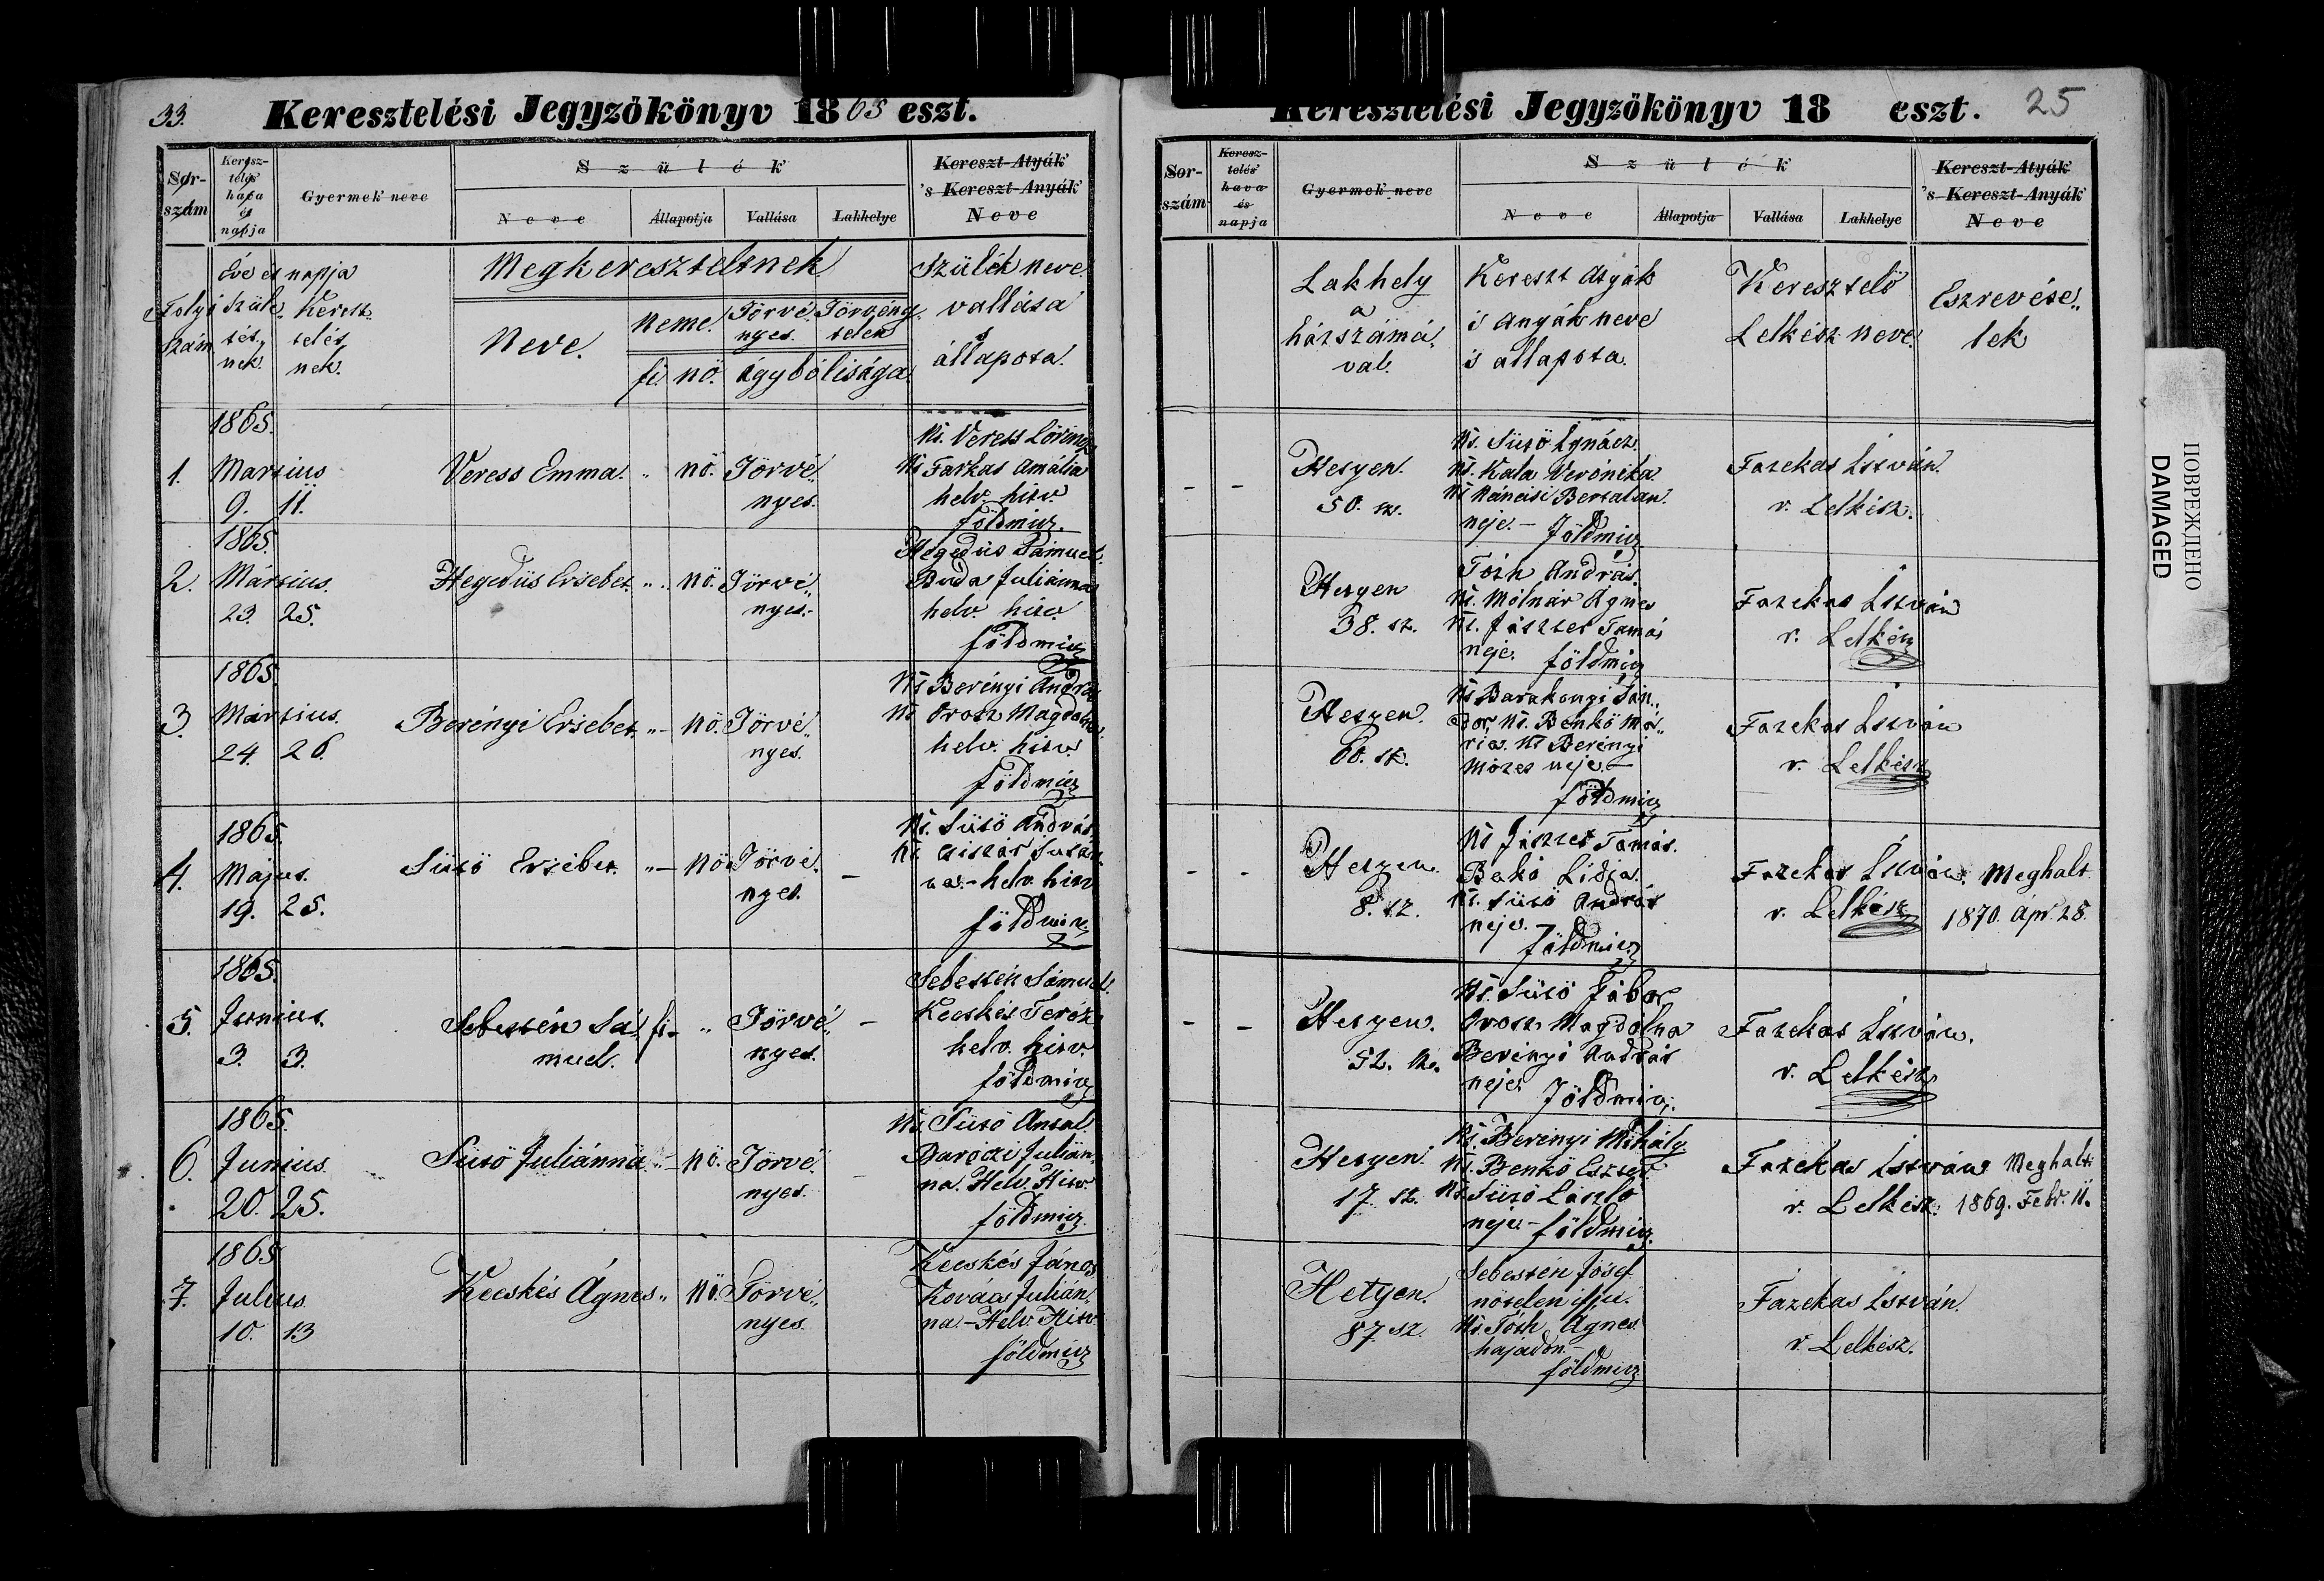 33.
Keresztelési Jegyzökönyv 1865 eszt.
Sor-
szám
Keresz-
telés
hava
és
napja
Gyermek neve
Szülék
Neve
Állapotja
Vallása
Lakhelye
Kereszt-Atyák
's Kereszt-Anyák
Neve
Folyó
szám
Éve és napja
Szüle-
tés,,
nek.
Keresz-
telés
nek.
Megkereszteltnek
Neve.
Neme.
fi
nö.
Törvé-
nyes.
Törvény-
telen
ágybólisága.
Szülék neve
vallása
s
állapota.
1.
1865.
Martius
9. 11.
Veress Emma. " nö. Törvé-
nyes.
Ns. Veress Lörincz
Ns Farkas Amália
helv. hitv.
földmivz.
2.
1865.
Mártius.
23. 25.
Hegedüs Ersebet. " nö. Törvé,,
nyes.
Hegedüs Sámuel.
Buda Juliánna
helv. hitv.
földmivz
3.
1865.
Mártius.
24. 26.
Berényi Ersebet. " nö. Törvé,,
nyes.
Ns Berényi András
Ns Orosz Magdolna.
helv. hitv.
földmivz
4.
1865.
Május.
19. 25.
Sütö Ersébet. " nö Törvé-
nyes.
Ns. Sütö András
na. - helv. hitv
földmivz
5.
1865.
Junius.
3. 3.
Sebestén Sá-
muel.
fi - " Törvé,,
nyes.
Sebestén Sámuel.
Kecskés Teréz
helv. hitv.
földmivz
6.
1865.
Junius
20. 25.
Sütö Juliánna " nö. Törvé-
nyes.
Ns. Sütö Antal.
Daróczi Julián,
na. Helv. Hitv.
földmivz.
7.
1865
Julius
10. 13
Kecskés Ágnes " nö. Törvé,,
nyes.
Kecskés János
Kovács Julián,,
na - Helv. Hitv.
földmivz
Keresztelési Jegyzökönyv 18 eszt.
25
Sor-
szám
Keresz-
telés
hava
és
napja
Gyermek neve
Szülék
Neve
Állapotja
Vallása
Lakhelye
Kereszt-Atyák
's Kereszt-Anyák
Neve
Lakhely
a
házszámá,
val.
Kereszt Atyák
s Anyák neve
s állapota.
Keresztelö
Lelkész neve.
Eszrevéte,,
lek
Hetyen.
50. sz.
Ns. Sütö Ignácz
Ns. Kala Verónika
Ns Ráncsi Bertalan.
neje. - földmivz
Fazekas István.
r. Lelkész.
Hetyen
38. sz.
Tóth András.
Ns. Molnár Ágnes
Ns. Jászter Tamás
neje. földmivz
Fazekas István
r. Lelkész
Hetyen.
60. sz.
Ns Barakonyi Sán,,
dor, Ns. Benkö Má,,
ria. Ns Berényi
Mózes neje -
földmivz
Fazekas István
r. Lelkész
Hetyen.
8. sz.
Ns Jászter Tamás.
Bakó Lidia.
Ns. Sütö András
neje. -
földmivz
Fazekas István.
r. Lelkész
Meghalt
1870. Ápr. 28.
Hetyen.
52. sz.
Ns. Sütö Gábor
Orosz Magdolna
Berényi András
neje. földmivz.
Fazekas István.
r. Lelkész
Hetyen.
17. sz.
Ns. Berényi Mihály
Ns. Benkö Eszter.
Ns. Sütö László
neje - földmivz.
Fazekas István
r. Lelkész.
Meghalt
1869. Febr. 11.
Hetyen.
87 sz.
Sebestén Jósef
nötelen ifju.
Ns. Tóth Ágnes.
hajadon. -
földmivz
Fazekas István.
r. Lelkész.
ПОВРЕЖДЕНО
DAMAGED